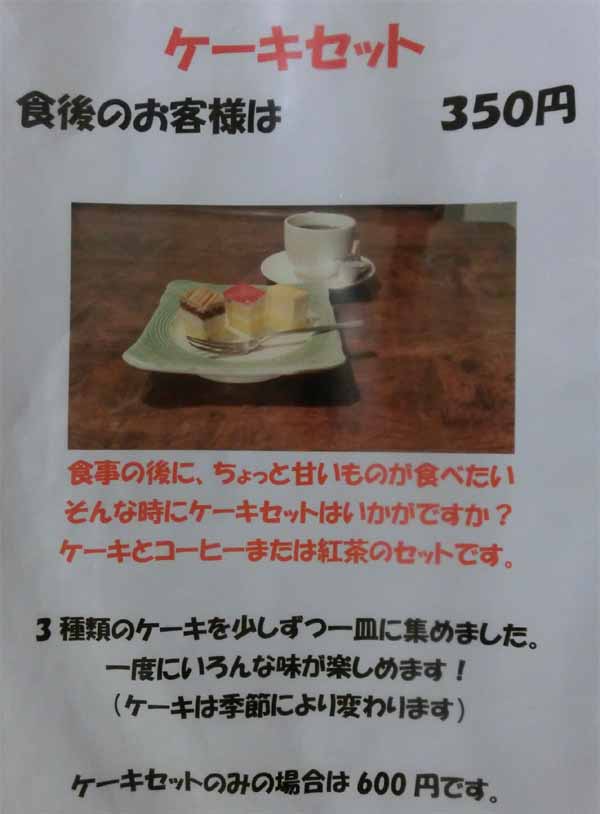 ケーキセット
食後のお客様は 350円
食事の後に、ちょっと甘いものが食べたい
そんな時にケーキセットはいかがですか？
ケーキとコーヒーまたは紅茶のセットです。
3種類のケーキを少しずつ一皿に集めました。
一度にいろんな味が楽しめます！
（ケーキは季節により変わります）
ケーキセットのみの場合は600円です。